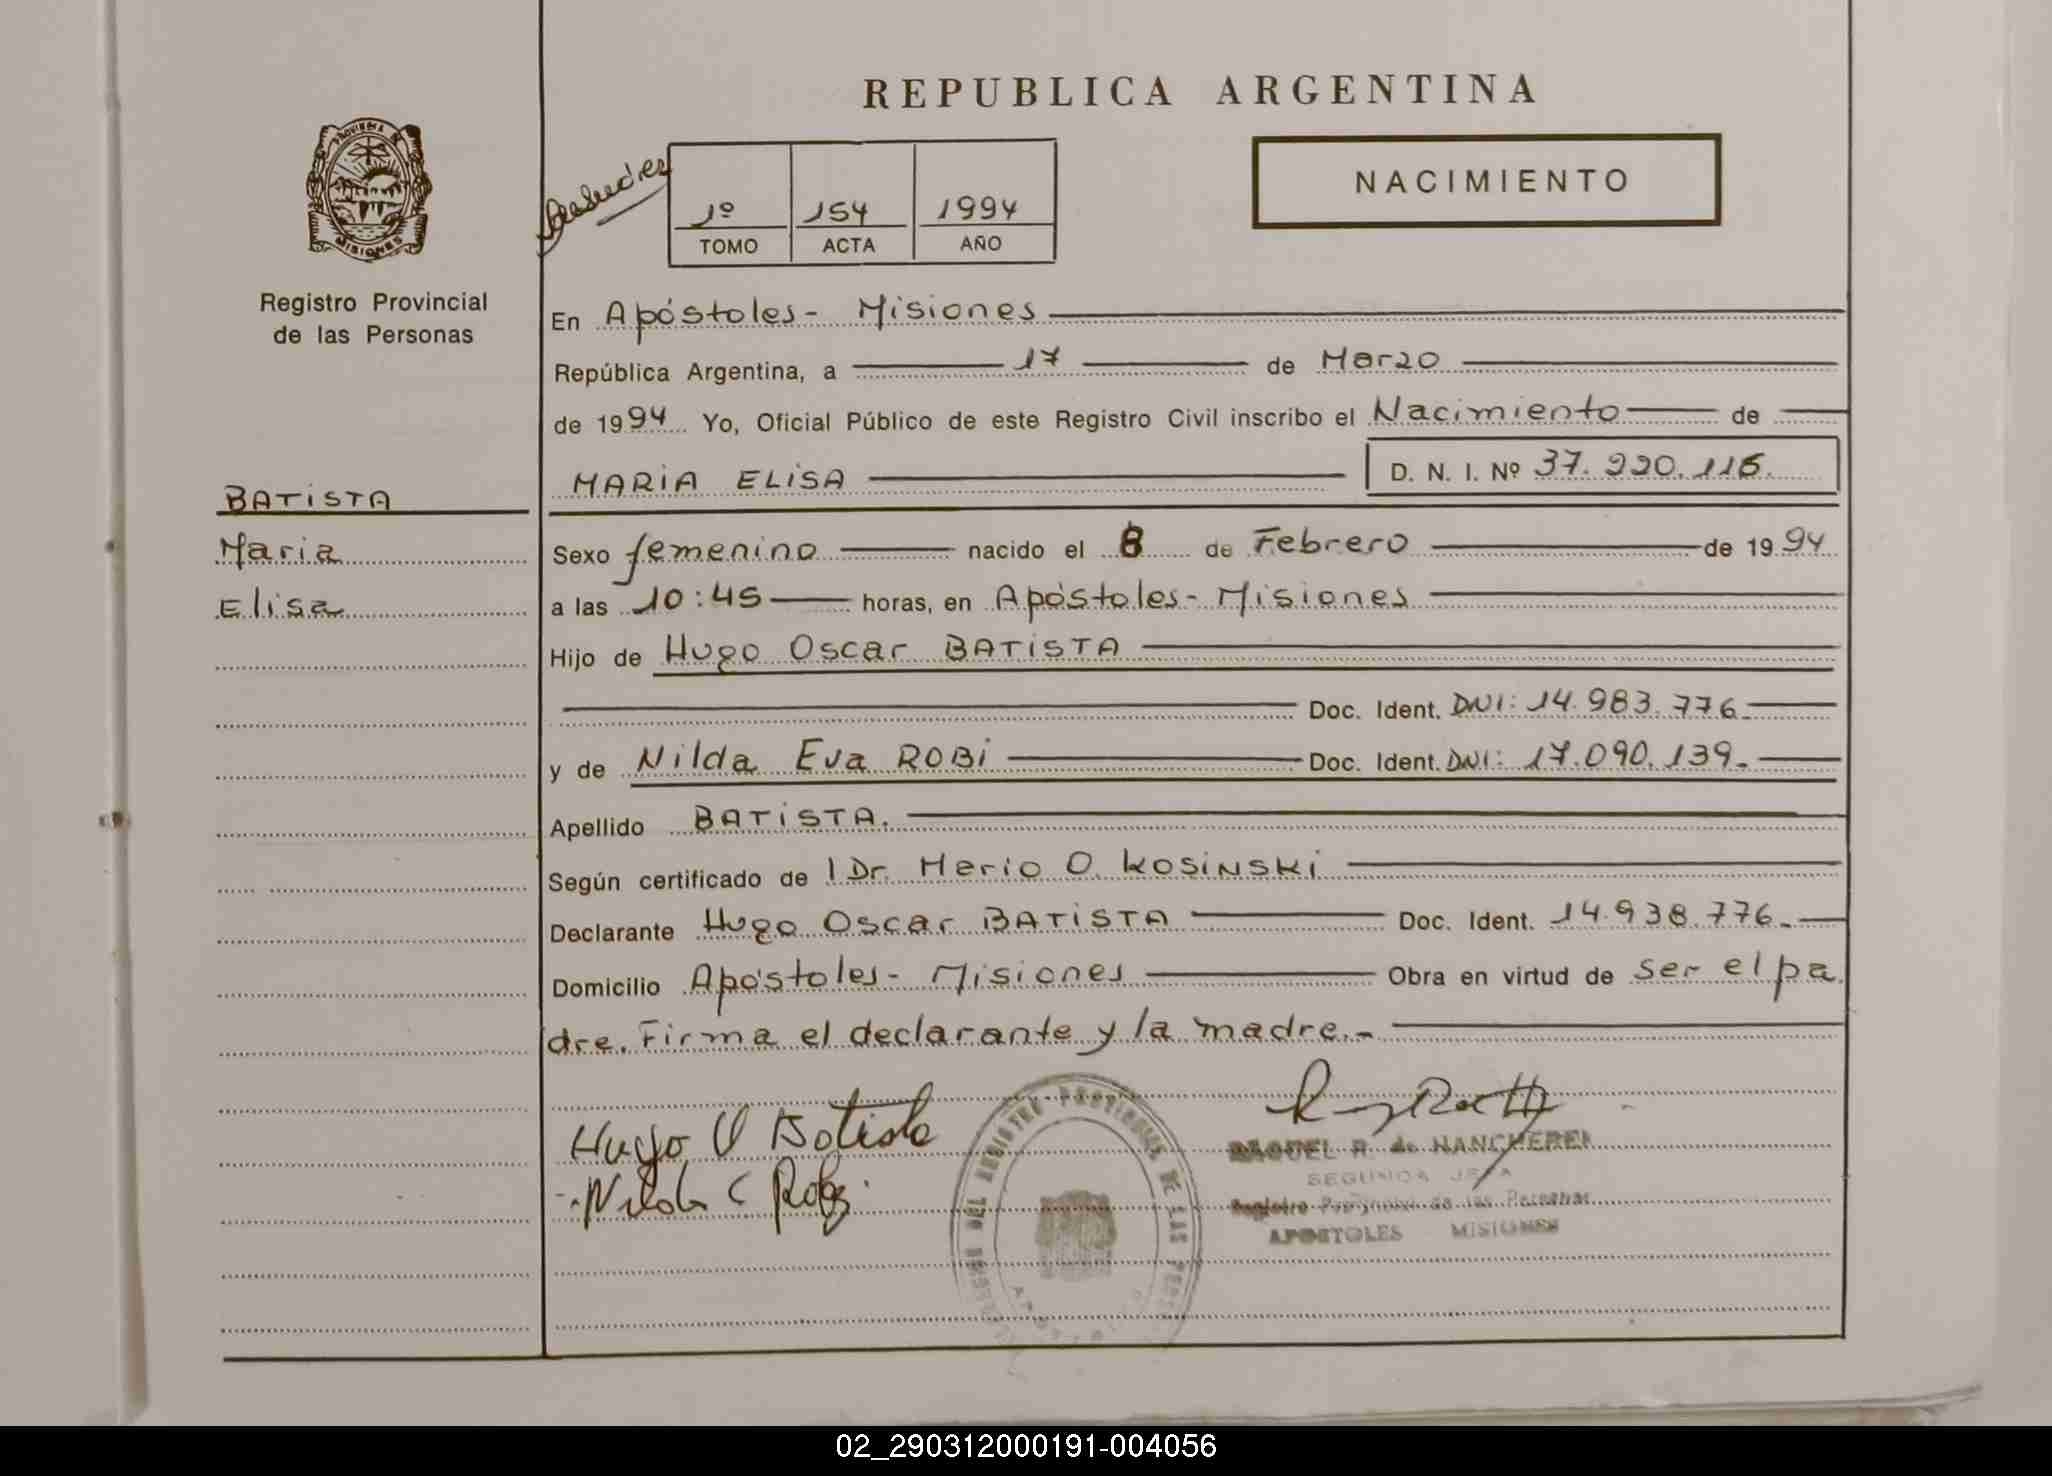 REPUBLICA ARGENTINA
PROVINCIA DE
MISIONES
Registro Provincial
de las Personas
1º 154 1994
TOMO ACTA AÑO
NACIMIENTO
En Apóstoles - Misiones
República Argentina, a 17 de Marzo
de 1994 Yo, Oficial Público de este Registro Civil inscribo el Nacimiento de
MARIA ELISA D. N. I. Nº 37.220.116.
BATISTA
Maria
Elisa
Sexo femenino nacido el 8 de Febrero de 1994
a las 10:45 horas, en Apóstoles - Misiones
Hijo de Hugo Oscar BATISTA
Doc. Ident. DNI: 14.983.776.
y de Nilda Eva ROBI Doc. Ident. DNI: 17.090.139.
Apellido BATISTA.
Según certificado de 1 Dr. Merio O. KOSINSKI
Declarante Hugo Oscar BATISTA Doc. Ident. 14.938.776.
Domicilio Apóstoles - Misiones Obra en virtud de ser el pa
dre. Firma el declarante y la madre.-
Hugo O Batista
Nilda Robi
REGISTRO PROVINCIAL DE LAS
RAQUEL R. de
SEGUNDA JEFA
Registro Provincial de las Personas
APOSTOLES MISIONES
02_290312000191-004056